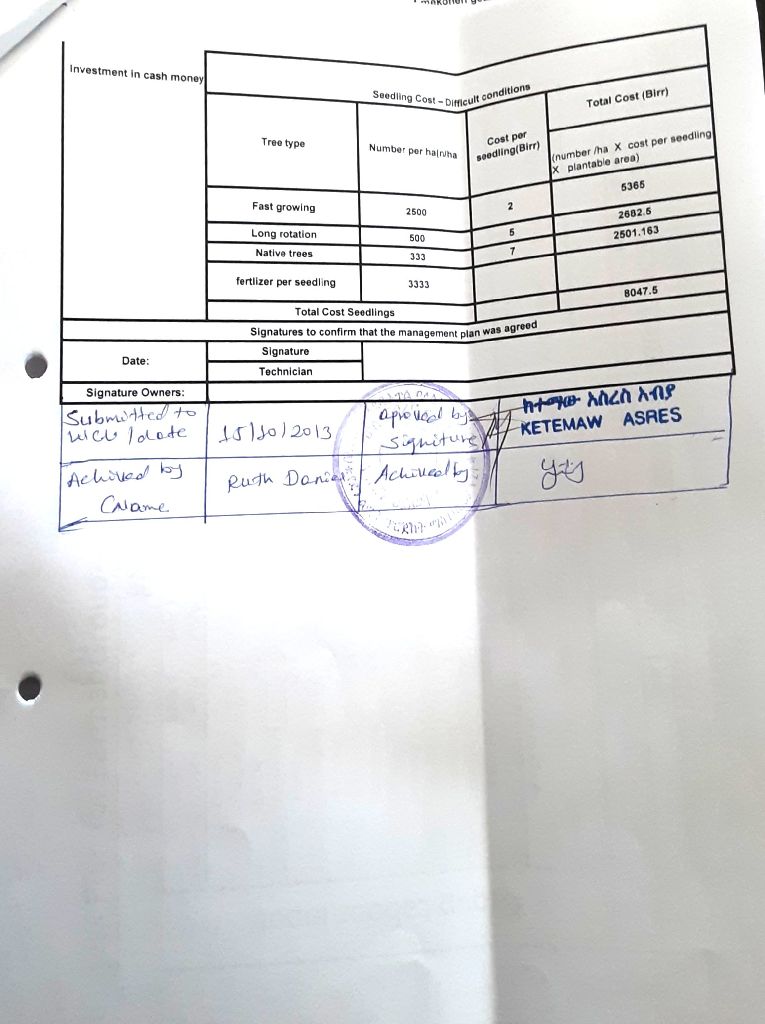 Investment in cash money
Seedling Cost – Difficult conditions
Tree type
Number per ha(n/ha
Cost per
seedling(Birr)
Total Cost (Birr)
(number /ha X cost per seedling
X plantable area)
Fast growing 2500 2 5365
Long rotation 500 5 2682.5
Native trees 333 7 2501.163
fertlizer per seedling 3333
Total Cost Seedlings 8047.5
Signatures to confirm that the management plan was agreed
Date:
Signature
Technician
Signature Owners:
Submitted to
/date
15/10/2013
aproved by
Signiture
ከተማው አስረስ አብያ
KETEMAW ASRES
Achived by
Cname
Ruth Daniel
Achived by